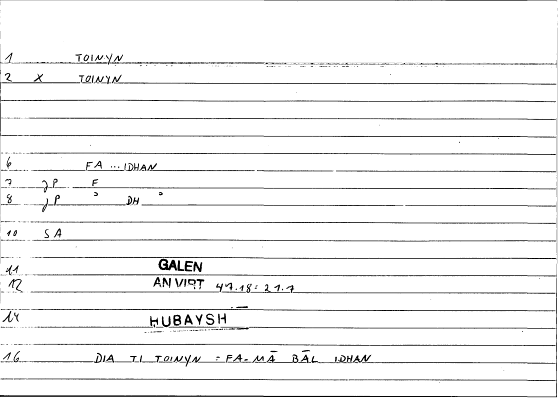 1 TOINYN
2 X TOINYN
6 FA ... IDHAN
7 JP F
8 JP DH
10 SA
11 GALEN
12 AN VIRT 47.18 = 21.7
14 HUBAYSH
16 DIA TI TOINYN = FA-MĀ BĀL IDHAN